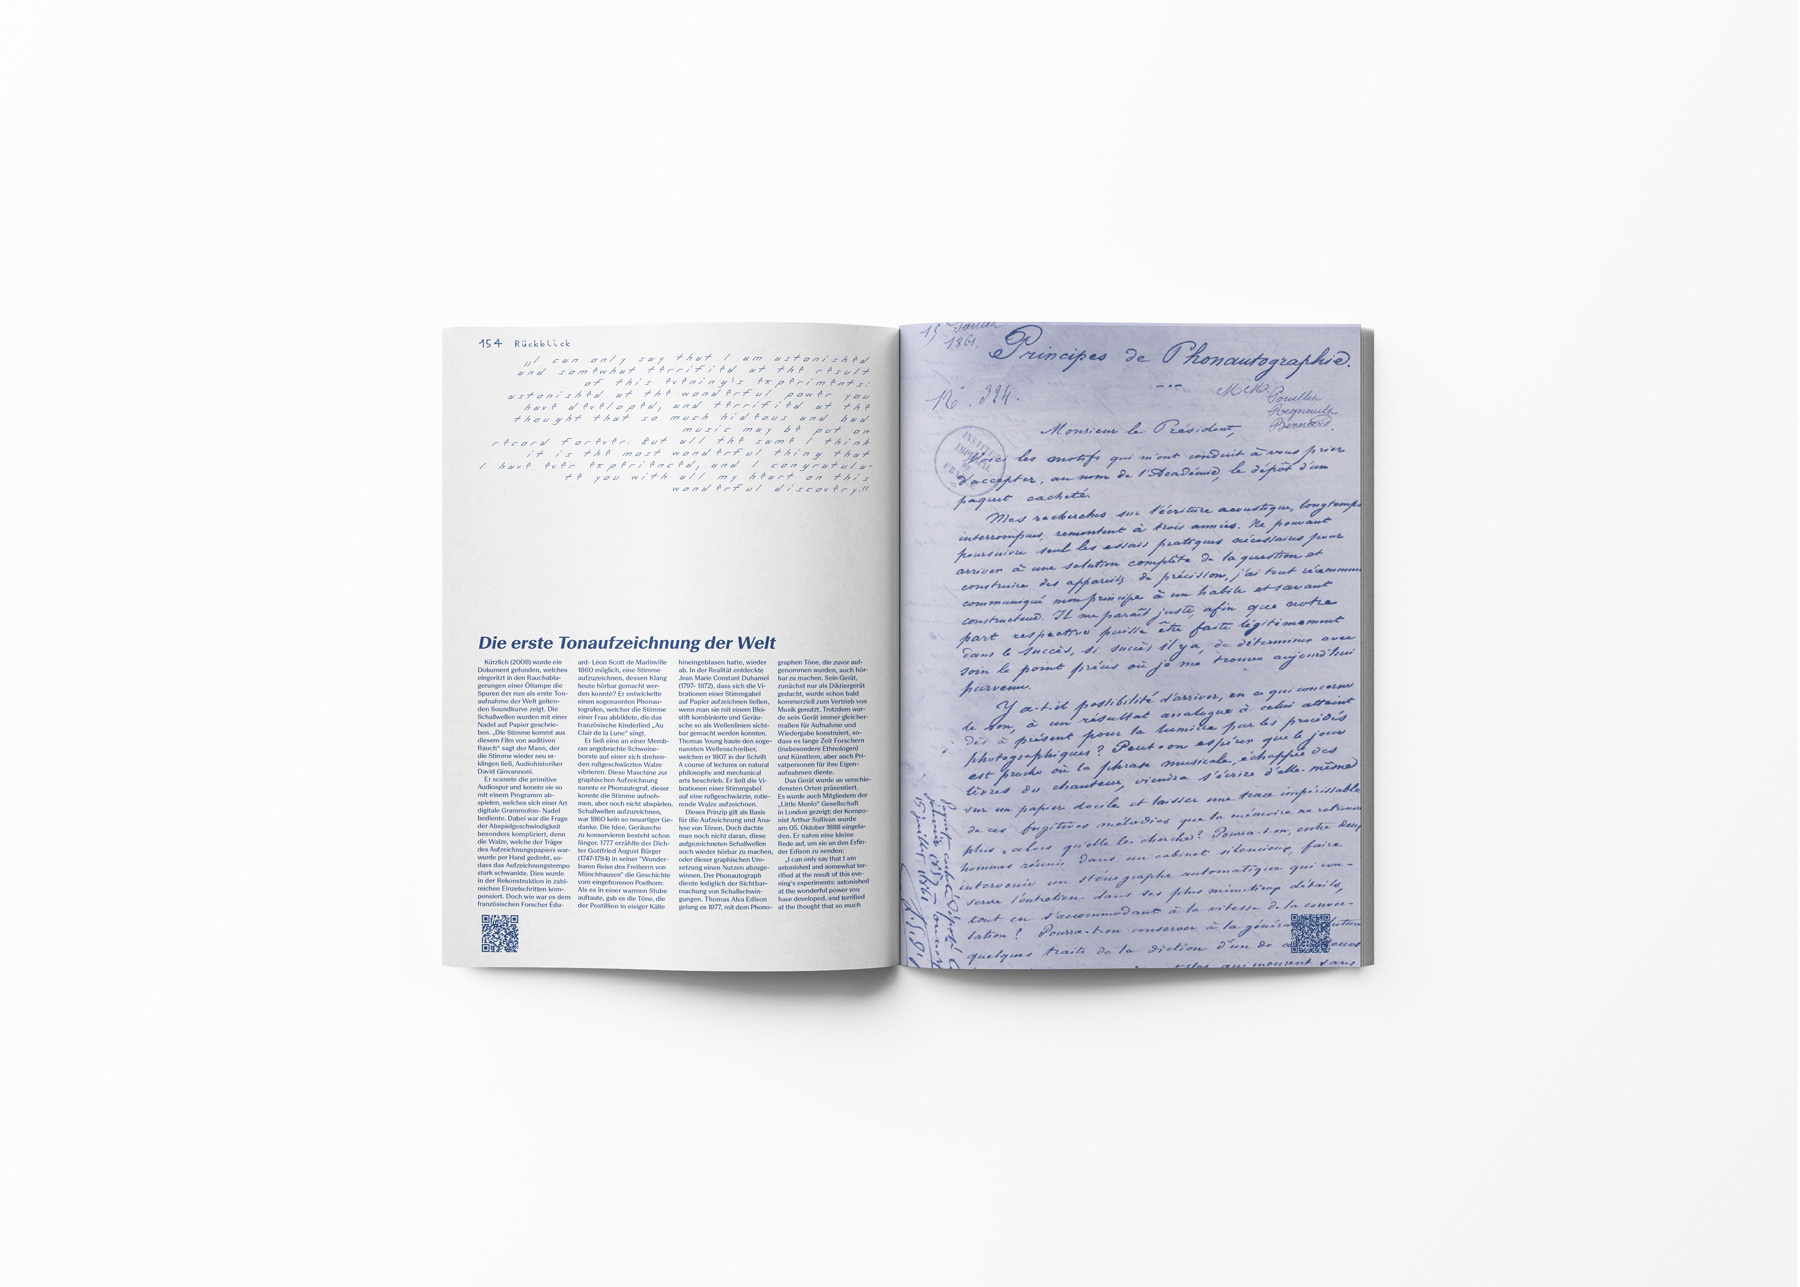 154 Rückblick
„I can only say that I am astonished
and somewhat terrified at the result
of this evening's experiments:
astonished at the wonderful power you
have developed, and terrified at the
thought that so much hideous and bad
music may be put on
record forever. But all the same I think
it is the most wonderful thing that
I have ever experienced, and I congratula-
te you with all my heart on this
wonderful discovery.“
Die erste Tonaufzeichnung der Welt
Kürzlich (2008) wurde ein
Dokument gefunden, welches
eingeritzt in den Rauchabla-
gerungen einer Öllampe die
Spuren der nun als erste Ton-
aufnahme der Welt gelten-
den Soundkurve zeigt. Die
Schallwellen wurden mit einer
Nadel auf Papier geschrie-
ben. „Die Stimme kommt aus
diesem Film von auditiven
Rauch“ sagt der Mann, der
die Stimme wieder neu er-
klingen ließ, Audiohistoriker
David Giovannoni.
Er scannte die primitive
Audiospur und konnte sie so
mit einem Programm ab-
spielen, welches sich einer Art
digitale Grammofon- Nadel
bediente. Dabei war die Frage
der Abspielgeschwindigkeit
besonders kompliziert, denn
die Walze, welche der Träger
des Aufzeichnungspapiers war-
wurde per Hand gedreht, so-
dass das Aufzeichnungstempo
stark schwankte. Dies wurde
in der Rekonstruktion in zahl-
reichen Einzelschritten kom-
pensiert. Doch wie war es dem
französischen Forscher Edu-
ard- Léon Scott de Martinville
1860 möglich, eine Stimme
aufzuzeichnen, dessen Klang
heute hörbar gemacht wer-
den konnte? Er entwickelte
einen sogenannten Phonau-
tografen, welcher die Stimme
einer Frau abbildete, die das
französische Kinderlind „Au
Clair de la Lune“ singt.
Er ließ eine an einer Memb-
ran angebrachte Schweine-
borste auf einer sich drehen-
den rußgeschwärzten Walze
vibrieren. Diese Maschine zur
graphischen Aufzeichnung
nannte er Phonautograf, dieser
konnte die Stimme aufneh-
men, aber noch nicht abspielen.
Schallwellen aufzuzeichnen,
war 1860 kein so neuartiger Ge-
danke. Die Idee, Geräusche
zu konservieren besteht schon
länger. 1777 erzählte der Dich-
ter Gottfried August Bürger
(1747-1794) in seiner "Wunder-
baren Reise des Freiherrn von
Münchhausen" die Geschichte
vom eingefrorenen Posthorn:
Als es in einer warmen Stube
auftaute, gab es die Töne, die
der Postillion in eisiger Kälte
hineingeblasen hatte, wieder
ab. In der Realität entdeckte
Jean Marie Constant Duhamel
(1797- 1872), dass sich die Vi-
brationen einer Stimmgabel
auf Papier aufzeichnen ließen,
wenn man sie mit einem Blei-
stift kombinierte und Geräu-
sche so als Wellenlinien sicht-
bar gemacht werden konnten.
Thomas Young baute den soge-
nannten Wellenschreiber,
welchen er 1807 in der Schrift
A course of lectures on natural
philosophy and mechanical
arts beschrieb. Er ließ die Vi-
brationen einer Stimmgabel
auf eine rußgeschwärzte, rotie-
rende Walze aufzeichnen.
Dieses Prinzip gilt als Basis
für die Aufzeichnung und Ana-
lyse von Tönen. Doch dachte
man noch nicht daran, diese
aufgezeichneten Schallwellen
auch wieder hörbar zu machen,
oder dieser graphischen Um-
setzung einen Nutzen abzuge-
winnen. Der Phonautograph
diente lediglich der Sichtbar-
machung von Schallschwin-
gungen. Thomas Alva Edison
gelang es 1877, mit dem Phono-
graphen Töne, die zuvor auf-
genommen wurden, auch hör-
bar zu machen. Sein Gerät,
zunächst nur als Diktiergerät
gedacht, wurde schon bald
kommerziell zum Vertrieb von
Musik genutzt. Trotzdem wur-
de sein Gerät immer gleicher-
maßen für Aufnahme und
Wiedergabe konstruiert, so-
dass es lange Zeit Forschern
(insbesondere Ethnologen)
und Künstlern, aber auch Pri-
vatpersonen für ihre Eigen-
aufnahmen diente.
Das Gerät wurde an verschie-
densten Orten präsentiert.
Es wurde auch Mitgliedern der
„Little Menlo“ Gesellschaft
in London gezeigt: der Kompo-
nist Arthur Sullivan wurde
am 05. Oktober 1888 eingela-
den. Er nahm eine kleine
Rede auf, um sie an den Erfin-
der Edison zu senden:
„I can only say that I am
astonished and somewhat ter-
rified at the result of this eve-
ning's experiments: astonished
at the wonderful power you
have developed, and terrified
at the thought that so much
15 Juillet
1861.
Principes de Phonautographie.
N° 324.
MM.
Pouillet
Regnault
Bernard.
INSTITUT IMPÉRIAL DE FRANCE
Monsieur le Président,
Voici les motifs qui m'ont conduit à vous prier
d'accepter, au nom de l'Académie, le dépôt d'un
paquet cacheté.
Mes recherches sur l'écriture acoustique, longtemps
interrompues, remontent à trois années. Ne pouvant
poursuivre seul les essais pratiques nécessaires pour
arriver à une solution complète de la question et
construire des appareils de précision, j'ai tout récemment
communiqué mon principe à un habile et savant
constructeur. Il me paraît juste, afin que notre
part respective puisse être faite légitimement
dans le succès, si succès il y a, de déterminer avec
soin le point précis où je me trouve aujourd'hui
parvenu.
Y a-t-il possibilité d'arriver, en ce qui concerne
le son, à un résultat analogue à celui atteint
dès à présent pour la lumière par les procédés
photographiques? Peut-on espérer que le jour
est proche où la phrase musicale, échappée des
lèvres du chanteur, viendra s'écrire d'elle-même
sur un papier docile et laisser une trace impérissable
de ces fugitives mélodies que la mémoire ne retrouve
plus alors qu'elle les cherche? Pourra-t-on, entre deux
hommes réunis dans un cabinet silencieux, faire
intervenir un sténographe automatique qui con-
serve l'entretien dans ses plus minutieux détails,
tout en s'accommodant à la vitesse de la conver-
sation? Pourra-t-on conserver à la génération future
quelques traits de la diction d'un de
qui meurent sans